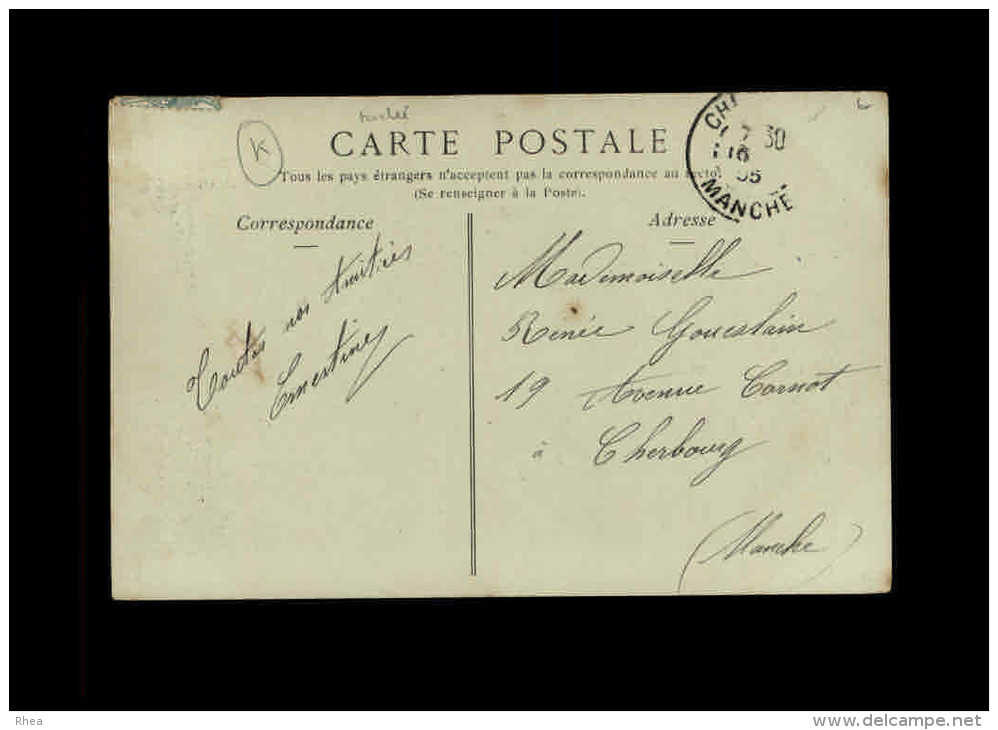 K
CARTE POSTALE
Tous les pays étrangers n'acceptent pas la correspondance au recto!
(Se renseigner à la Poste).
Correspondance
Toutes nos amitiés
Ernestine
MANCHE
Adresse
Mademoiselle
Renée
19 Avenue Carnot
à Cherbourg
(Manche)
Rhea
www.delcampe.net